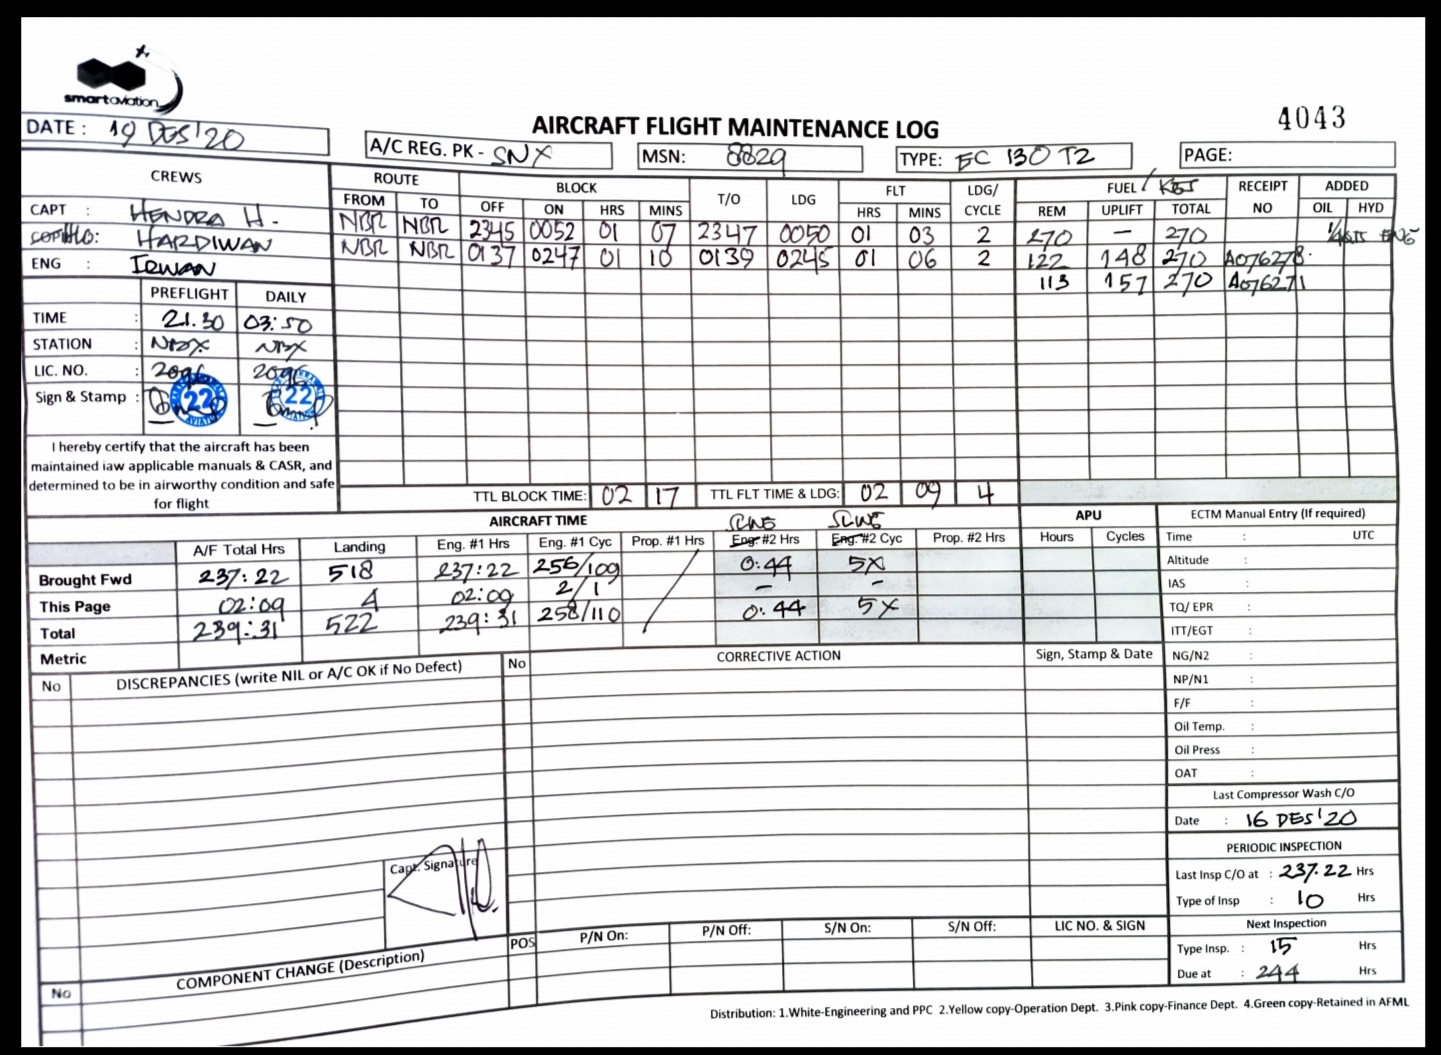 smartaviation
4043
AIRCRAFT FLIGHT MAINTENANCE LOG
DATE : 19 DES'20
A/C REG. PK - SNX
MSN: 8829
TYPE: EC 130 T2
PAGE:
CREWS
CAPT : HENDRA H.
HARDIWAN
ENG : IRWAN
ROUTE BLOCK T/O LDG FLT LDG/ CYCLE FUEL / KGS RECEIPT NO ADDED
FROM TO OFF ON HRS MINS HRS MINS REM UPLIFT TOTAL OIL HYD
NBR NBR 2345 0052 01 07 2347 0050 01 03 2 270 — 270
NBR NBR 0137 0247 01 10 0139 0245 01 06 2 122 148 270 A076278
113 157 270 A076271
PREFLIGHT DAILY
TIME : 21.30 03:50
STATION : NBX NBX
LIC. NO. : 2096 2096
Sign & Stamp :
22 22
I hereby certify that the aircraft has been
maintained iaw applicable manuals & CASR, and
determined to be in airworthy condition and safe
for flight
TTL BLOCK TIME: 02 17 TTL FLT TIME & LDG: 02 09 4
AIRCRAFT TIME
SLING SLING
A/F Total Hrs Landing Eng. #1 Hrs Eng. #1 Cyc Prop. #1 Hrs Eng. #2 Hrs Eng. #2 Cyc Prop. #2 Hrs
Brought Fwd 237:22 518 237:22 256/109 0:44 5X
This Page 02:09 4 02:09 2/1 – –
Total 239:31 522 239:31 258/110 0:44 5X
Metric
APU
Hours Cycles
ECTM Manual Entry (If required)
Time : UTC
Altitude :
IAS :
TQ/ EPR :
ITT/EGT :
NG/N2 :
NP/N1 :
F/F :
Oil Temp. :
Oil Press :
OAT :
Last Compressor Wash C/O
Date : 16 DES'20
PERIODIC INSPECTION
Last Insp C/O at : 237.22 Hrs
Type of Insp : 10 Hrs
Next Inspection
Type Insp. : 15 Hrs
Due at : 244 Hrs
No DISCREPANCIES (write NIL or A/C OK if No Defect)
No CORRECTIVE ACTION Sign, Stamp & Date
Capt. Signature
No COMPONENT CHANGE (Description)
POS P/N On: P/N Off: S/N On: S/N Off: LIC NO. & SIGN
Distribution: 1.White-Engineering and PPC 2.Yellow copy-Operation Dept. 3.Pink copy-Finance Dept. 4.Green copy-Retained in AFML